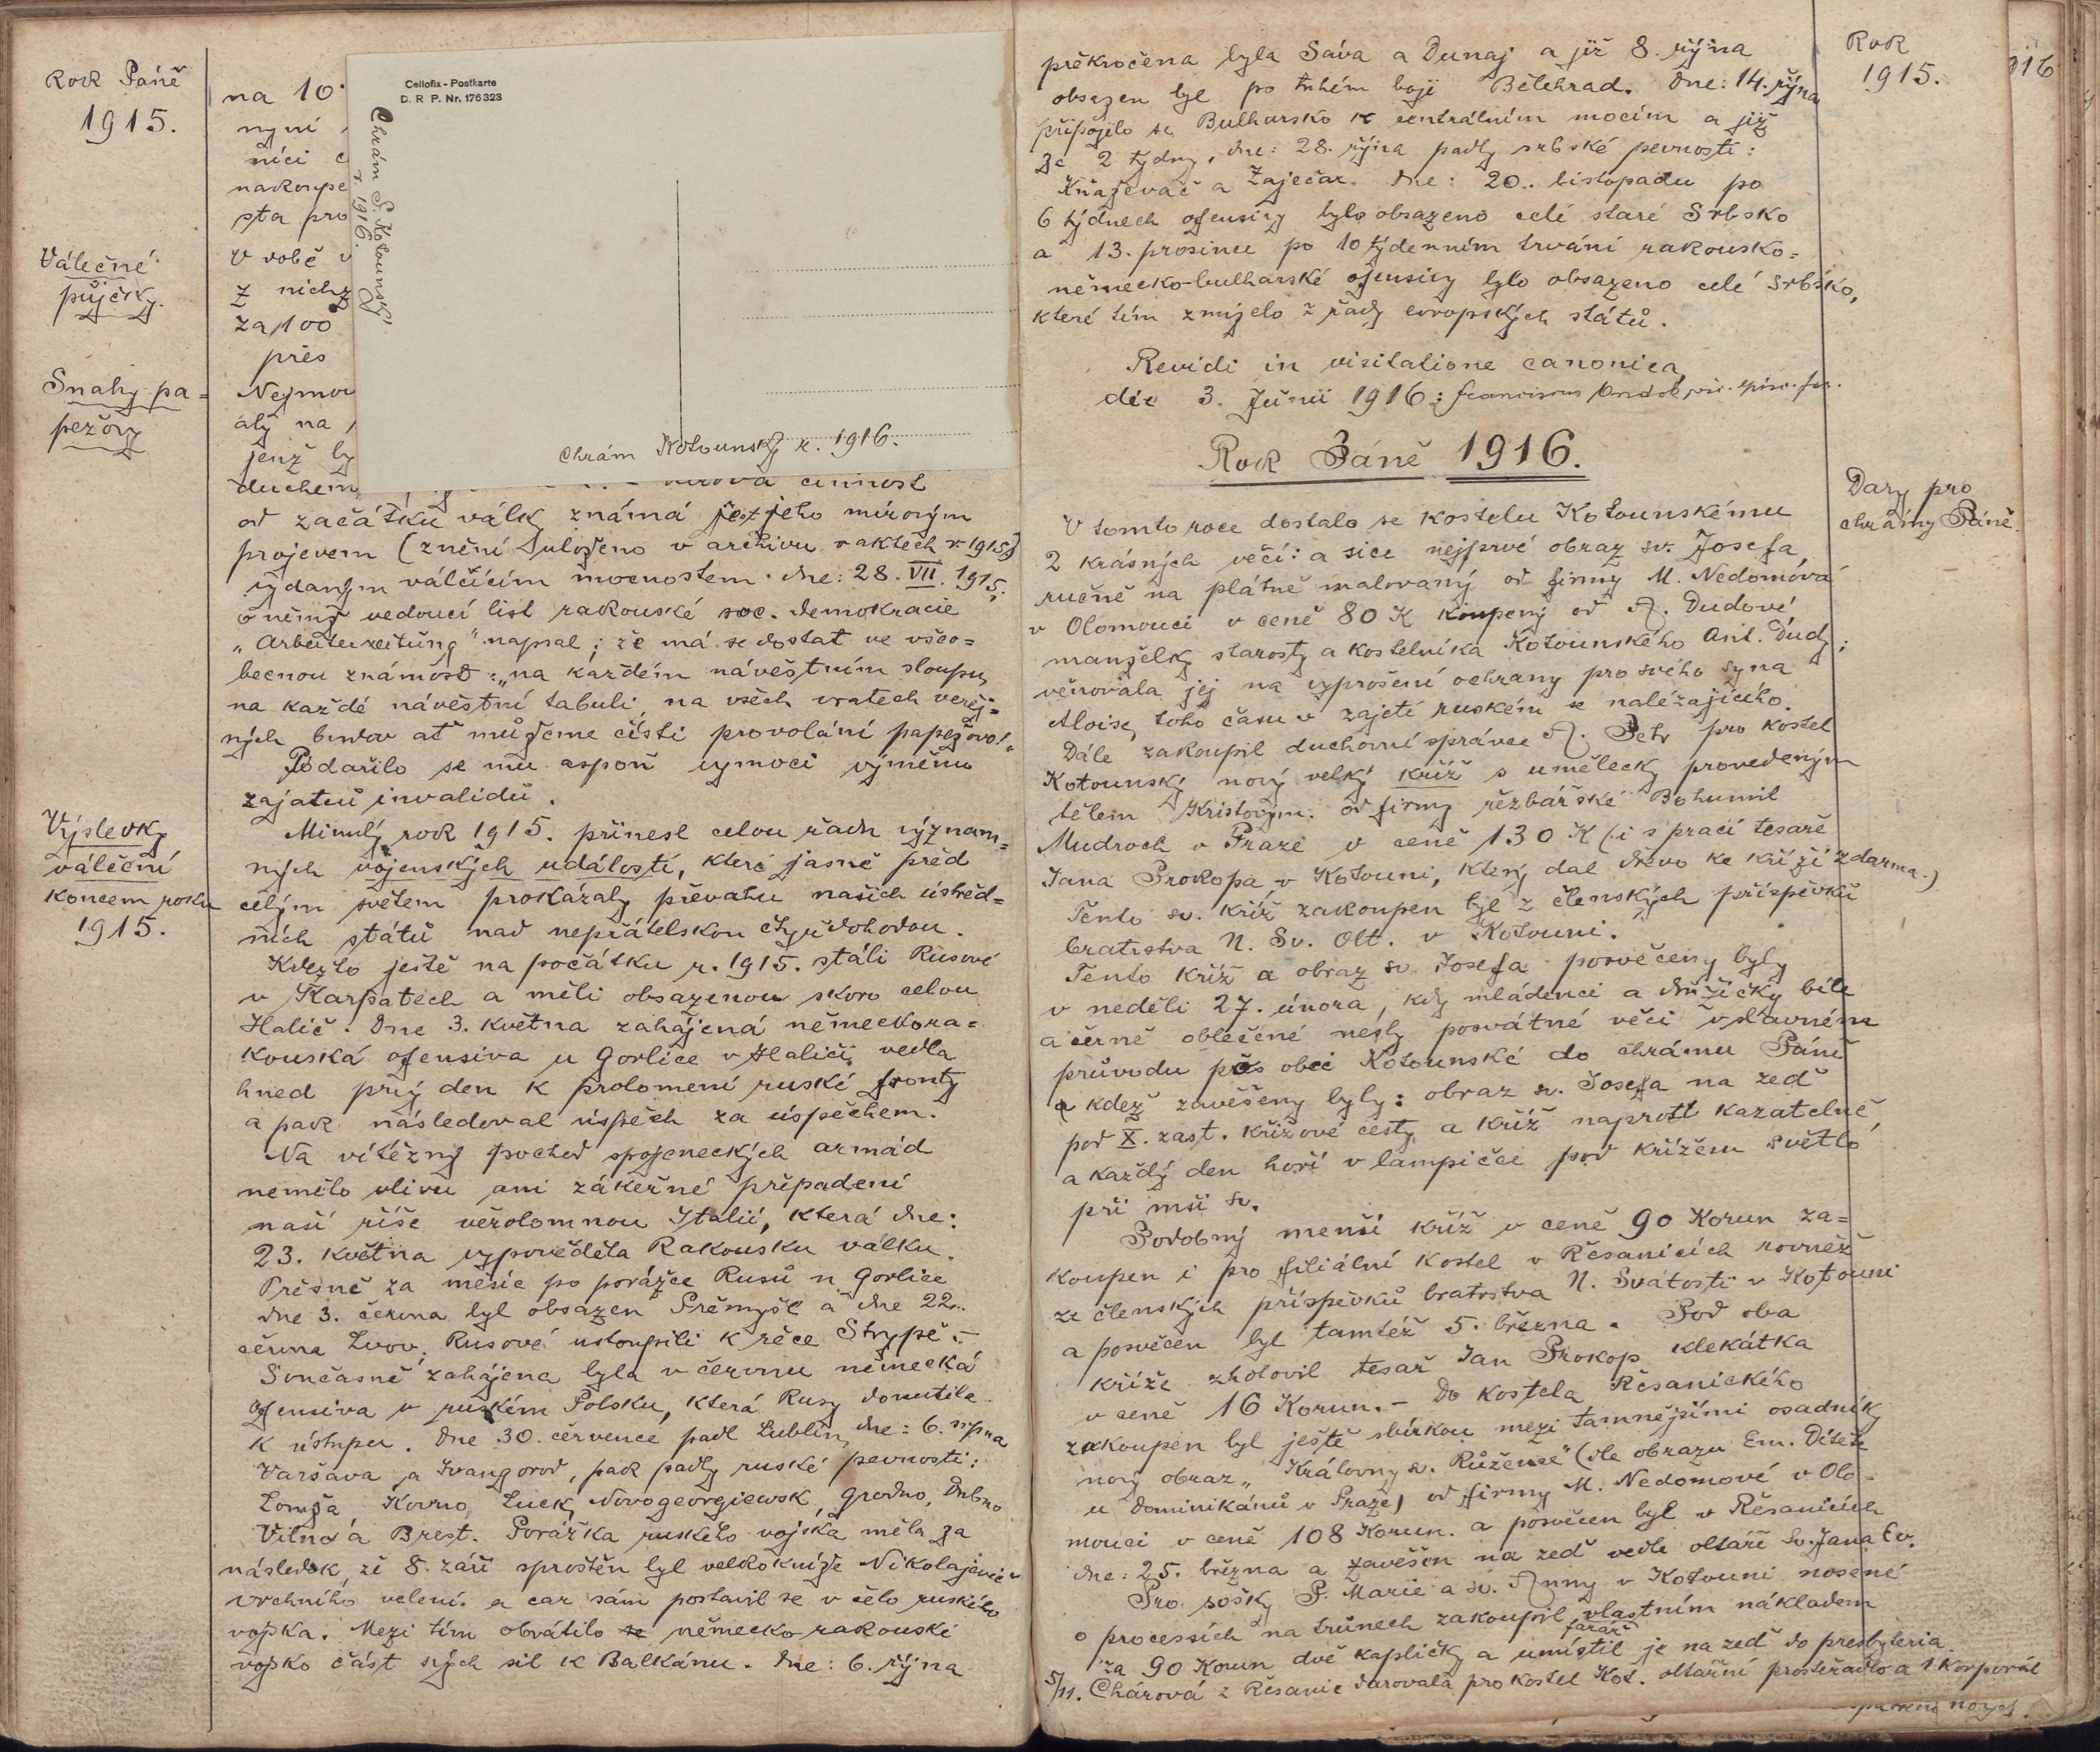 Rok Páně
1915.
Válečné
půjčky.
Snahy pa=
pežovy
Výsledky
válečné
koncem roku
1915.
na 10
nyní
níci
nakoupe
sta pro
V době v
z nichž
za 100
přes
Nejmou
aby na
jenž by
duchem
Cellofix - Postkarte
D. R P. Nr. 176323
Chrám S. Kotounský
r. 1916.
Chrám Kotounský r. 1916.
činnost
od začátku války známá jest jeho mírovým
projevem (znění uloženo v archivu v aktech r 1915)
vydaným válčícím mocnostem. dne: 28. VII. 1915.
o němž vedoucí list rakouské soc. demokracie
„Arbeiterzeitung" napsal; že má se dostat ve všeo=
becnou známost: „na každém návěstním sloupu,
na každé návěstní tabuli, na všech vratech veřej=
ných budov ať můžeme čísti provolání papežovo!"
Podařilo se mu aspoň vymoci výměnu
zajatců invalidů.
Minulý rok 1915. přinesl celou řadu význam=
ných vojenských událostí, které jasně před
celým světem prokázaly převahu našich ústřed=
ních států nad nepřátelskou čtyřdohodou.
Kdežto ještě na počátku r. 1915. stáli Rusové
v Karpatech a měli obsazenou skoro celou
Halič. Dne 3. května zahájená německora=
kouská ofensiva u Gorlice v Haliči vedla
hned prvý den k prolomení ruské fronty
a pak následoval úspěch za úspěchem.
Na vítězný pochod spojeneckých armád
nemělo vlivu ani zákeřné připadení
naší říše věrolomnou Italií, která dne:
23. května vypověděla Rakousku válku.
Přesně za měsíc po porážce Rusů u Gorlice
dne 3. června byl obsazen Přemyšl a dne 22.
června Lvov. Rusové ustoupili k řece Strypě.-
Současně zahájena byla v červnu německá
ofensiva v ruském Polsku, která Rusy donutila
k ústupu. Dne 30. července padl Lublin, dne: 6. srpna
Varšava a Ivangorod, pak padly ruské pevnosti:
Lomža Kovno, Luck, Novogeorgiewsk, Grodno, Dubno
Vilno a Brest. Porážka ruského vojska měla za
následek, že 8. září sproštěn byl velkokníže Nikolajevič
vrchního velení. a car sám postavil se v čelo ruského
vojska. Mezi tím obrátilo se německo-rakouské
vojsko část svých sil k Balkánu. Dne: 6. října
překročena byla Sáva a Dunaj a již 8. října
obsazen byl po tuhém boji Bělehrad. Dne: 14. října
připojilo se Bulharsko k centrálním mocím a již
za 2 týdny, dne: 28. října padly srbské pevnosti:
Kňaževač a Zaječar. Dne: 20. listopadu po
6 týdnech ofensivy bylo obsazeno celé staré Srbsko
a 13. prosince po 10 týdenním trvání rakousko=
německo-bulharské ofensivy bylo obsazeno celé Srbsko,
které tím zmizelo z řady evropských států.
Revidi in visitatione canonica
die 3. Junii 1916: Franciscus
Rok Páně 1916.
V tomto roce dostalo se kostelu Kotounskému
2 krásných věcí: a sice nejprvé obraz sv. Josefa,
ručně na plátně malovaný od firmy M. Nedomová
v Olomouci v ceně 80 K koupený od A. Dudové
manželky starosty a kostelníka Kotounského Ant. Dudy;
věnovala jej na vyprošení ochrany pro svého syna
Aloise, toho času v zajetí ruském se naležajícího.
Dále zakoupil duchovní správce A. Petr pro kostel
Kotounský nový velký kříž s umělecky provedeným
tělem Kristovým. od firmy řezbářské Bohumil
Mudroch v Praze v ceně 130 K (i s prací tesaře
Jana Prokopa v Kotouni, který dal dřevo ke kříži zdarma.)
Tento sv. kříž zakoupen byl z členských příspěvků
bratrstva N. Sv. Olt. v Kotouni.
Tento kříž a obraz sv. Josefa posvěceny byly
v neděli 27. února, kdy mládenci a družičky bíle
a černě oblečené nesly posvátné věci v slavném
průvodu přes obec Kotounské do chrámu Páně
a kdež zavěšeny byly: obraz sv. Josefa na zeď
pod X. zast. křížové cesty a kříž naproti kazatelně,
a každý den hoří v lampičce pod křížem světlo
při mši sv.
Podobný menší kříž v ceně 90 Korun za=
koupen i pro filiální kostel v Řesanicích rovněž
ze členských příspěvků bratrstva N. Svátosti v Kotouni
a posvěcen byl tamtéž 5. března. Pod oba
kříže zhotovil tesař Jan Prokop klekátka
v ceně 16 Korun.- Do kostela Řesanického
zakoupen byl ještě sbírkou mezi tamnějšími osadníky
nový obraz „Královny sv. Růžence" (dle obrazu Em. Dítěte
u Dominikánů v Praze) od firmy M. Nedomové v Olo-
mouci v ceně 108 Korun. a posvěcen byl v Řesanicích
dne: 25. března a zavěšen na zeď vedle oltáře Sv. Jana Ev.
Pro sošky P. Marie a sv. Anny v Kotouni nosené
o processích na trůnech zakoupil vlastním nákladem
farář
za 90 Korun dvě kapličky a umístil je na zeď do presbyteria.
5/11. Chárová z Řesanic darovala pro kostel Kot. oltářní prostěradlo a 1 korporál
nových.
Rok
1915.
Dary pro
chrámy Páně.
916